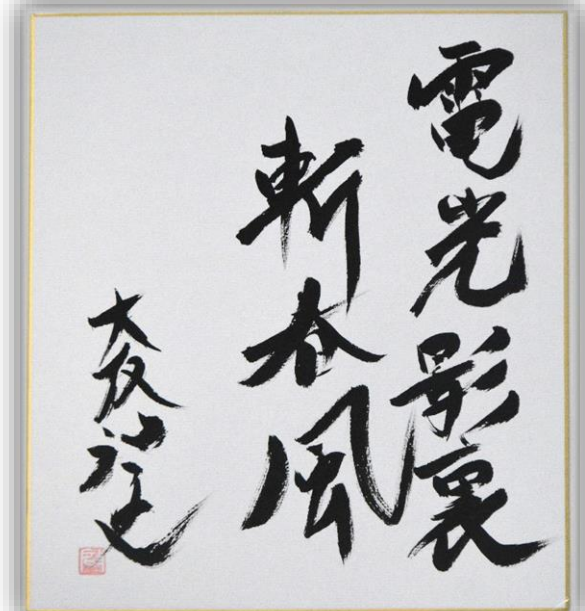 電光影裏
斬春風
大友